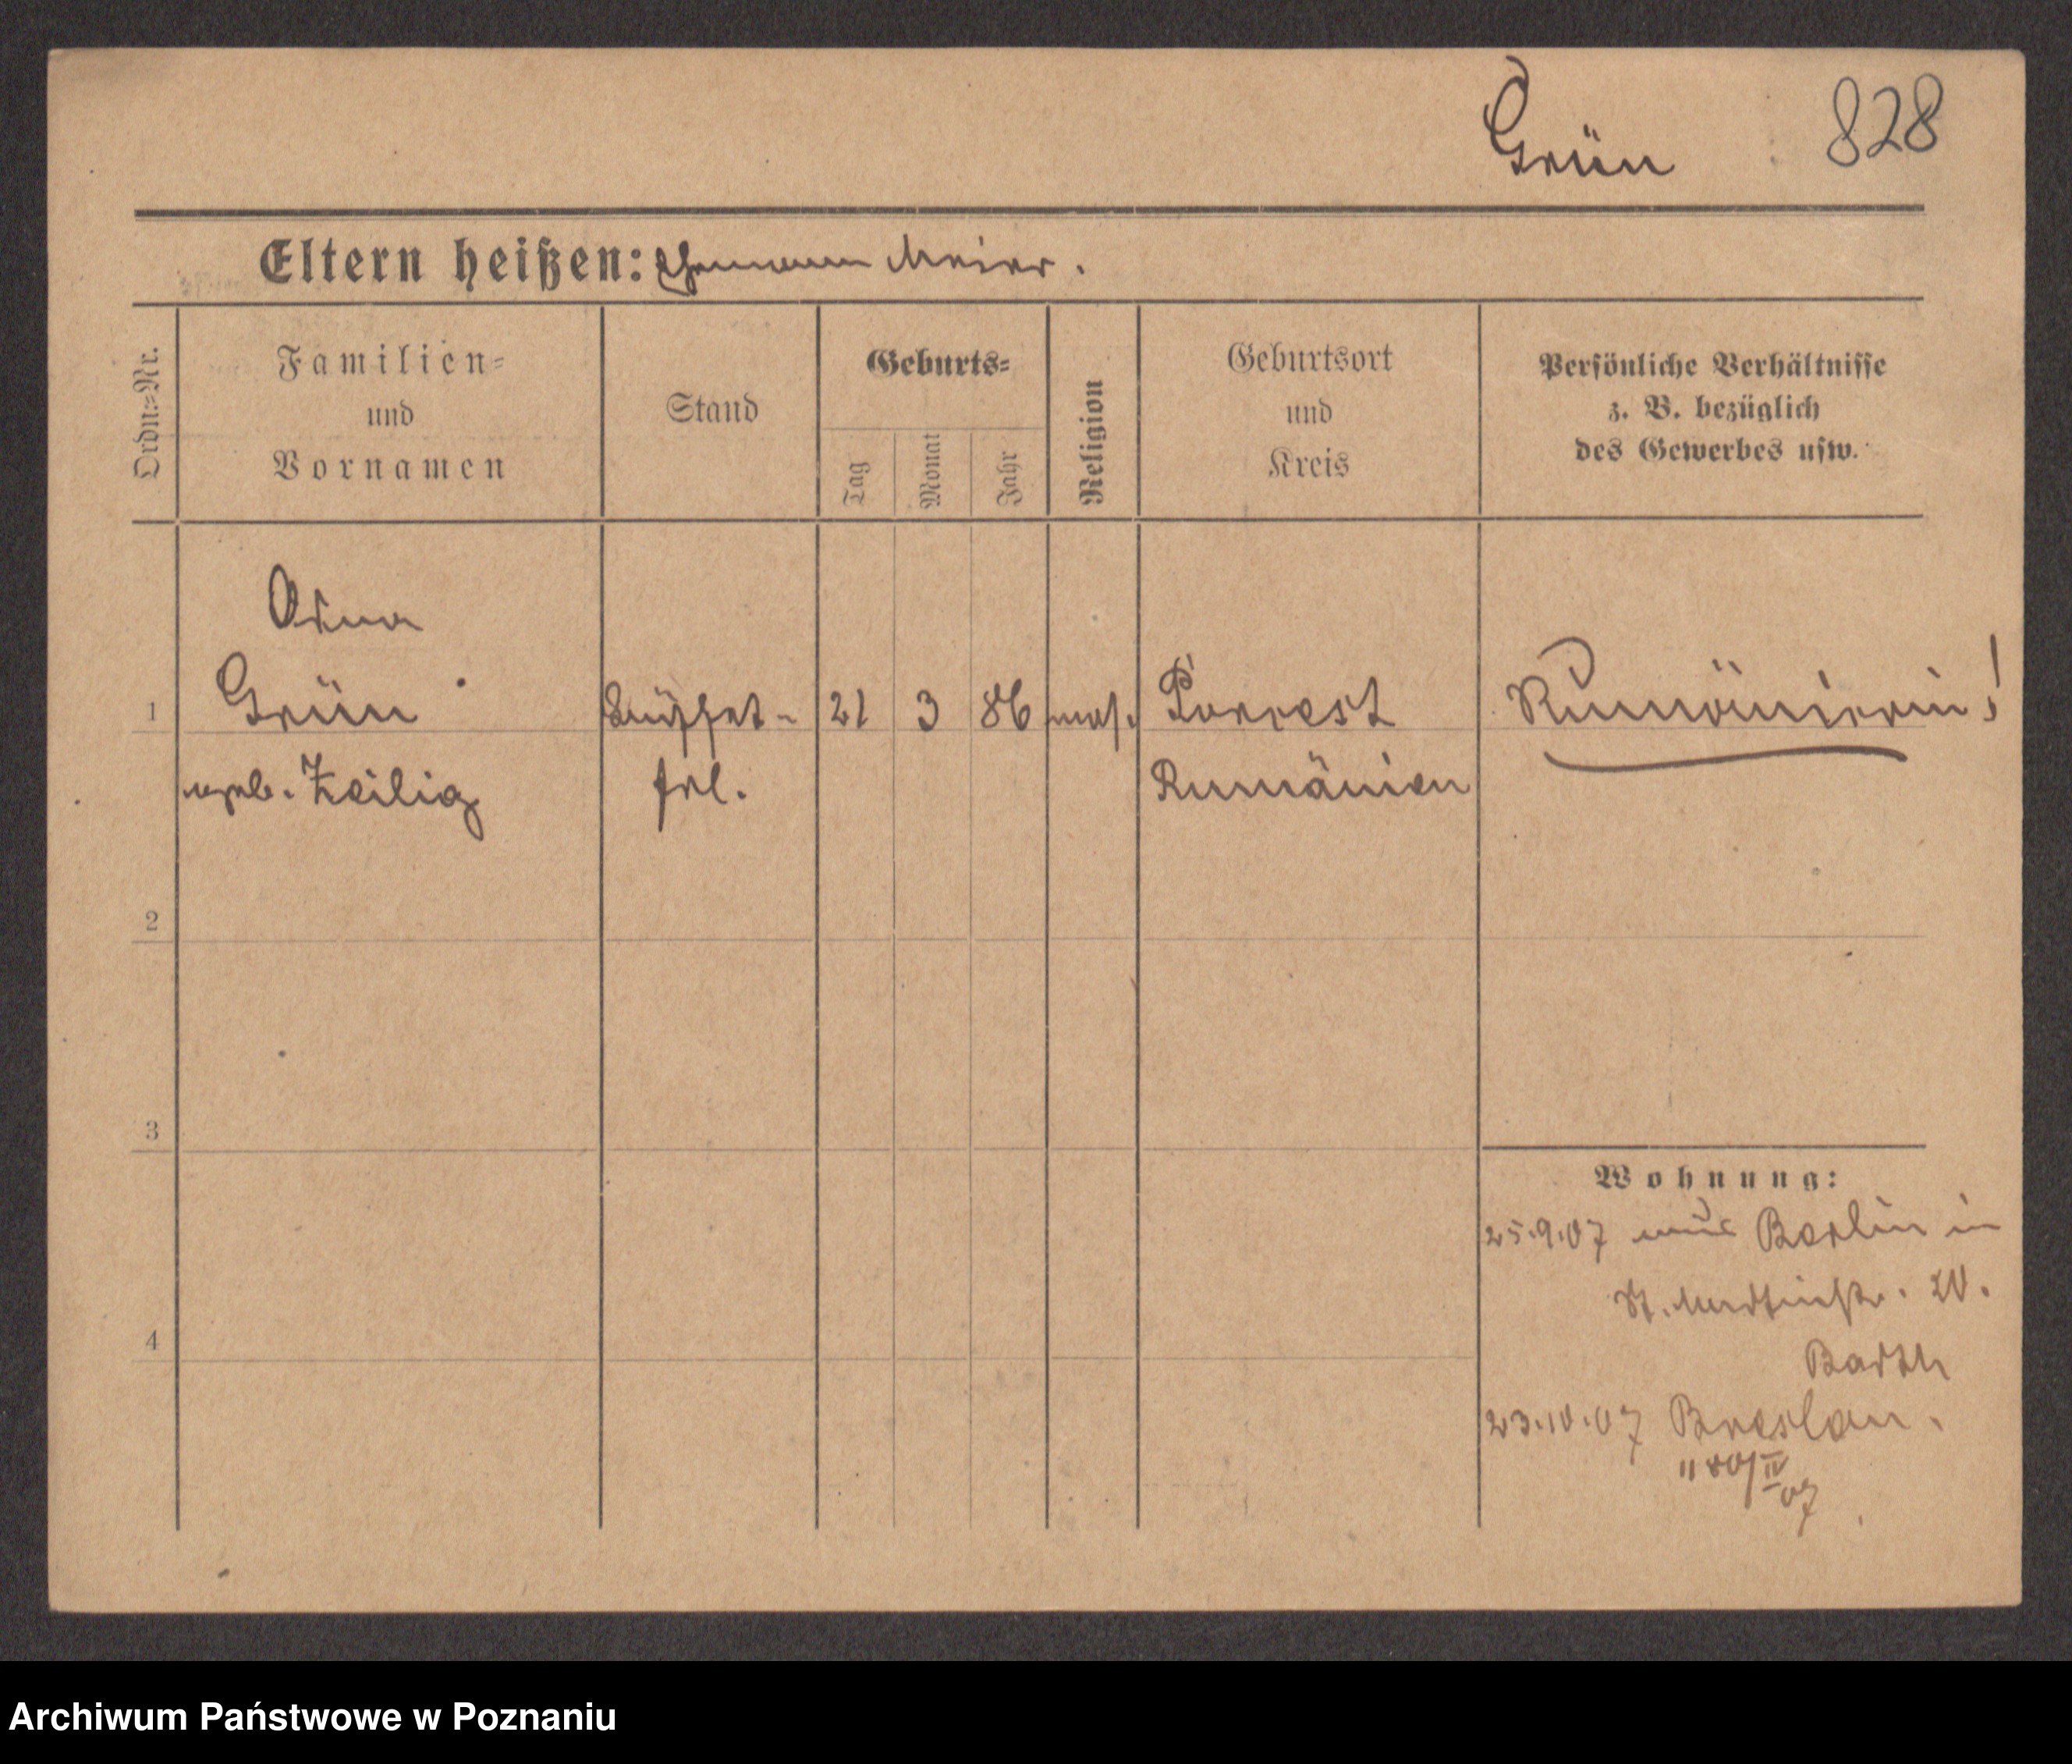 Grün 828
Eltern heißen: Ehemann Meier.
Ordn.-Nr.
Familien-
und
Vornamen
Stand
Geburts-
Tag
Monat
Jahr
Religion
Geburtsort
und
Kreis
Persönliche Verhältnisse
z. B. bezüglich
des Gewerbes usw.
1
Grün
geb. Zeilig
Büffet-
frl.
21 3 86 mos.
Rumänien
Rumänierin!
2
3
4
Wohnung:
25.9.07 aus Berlin in
St. Martinstr. 20.
Barth
23.10.07 Breslau.
Archiwum Państwowe w Poznaniu